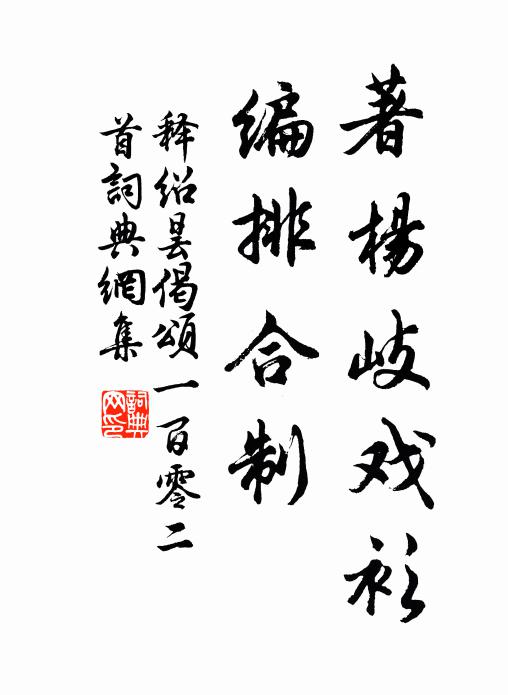 著楊岐戏衫
编排合制
释绍昙偈頌一百零二
首詞典網集
詞典网印